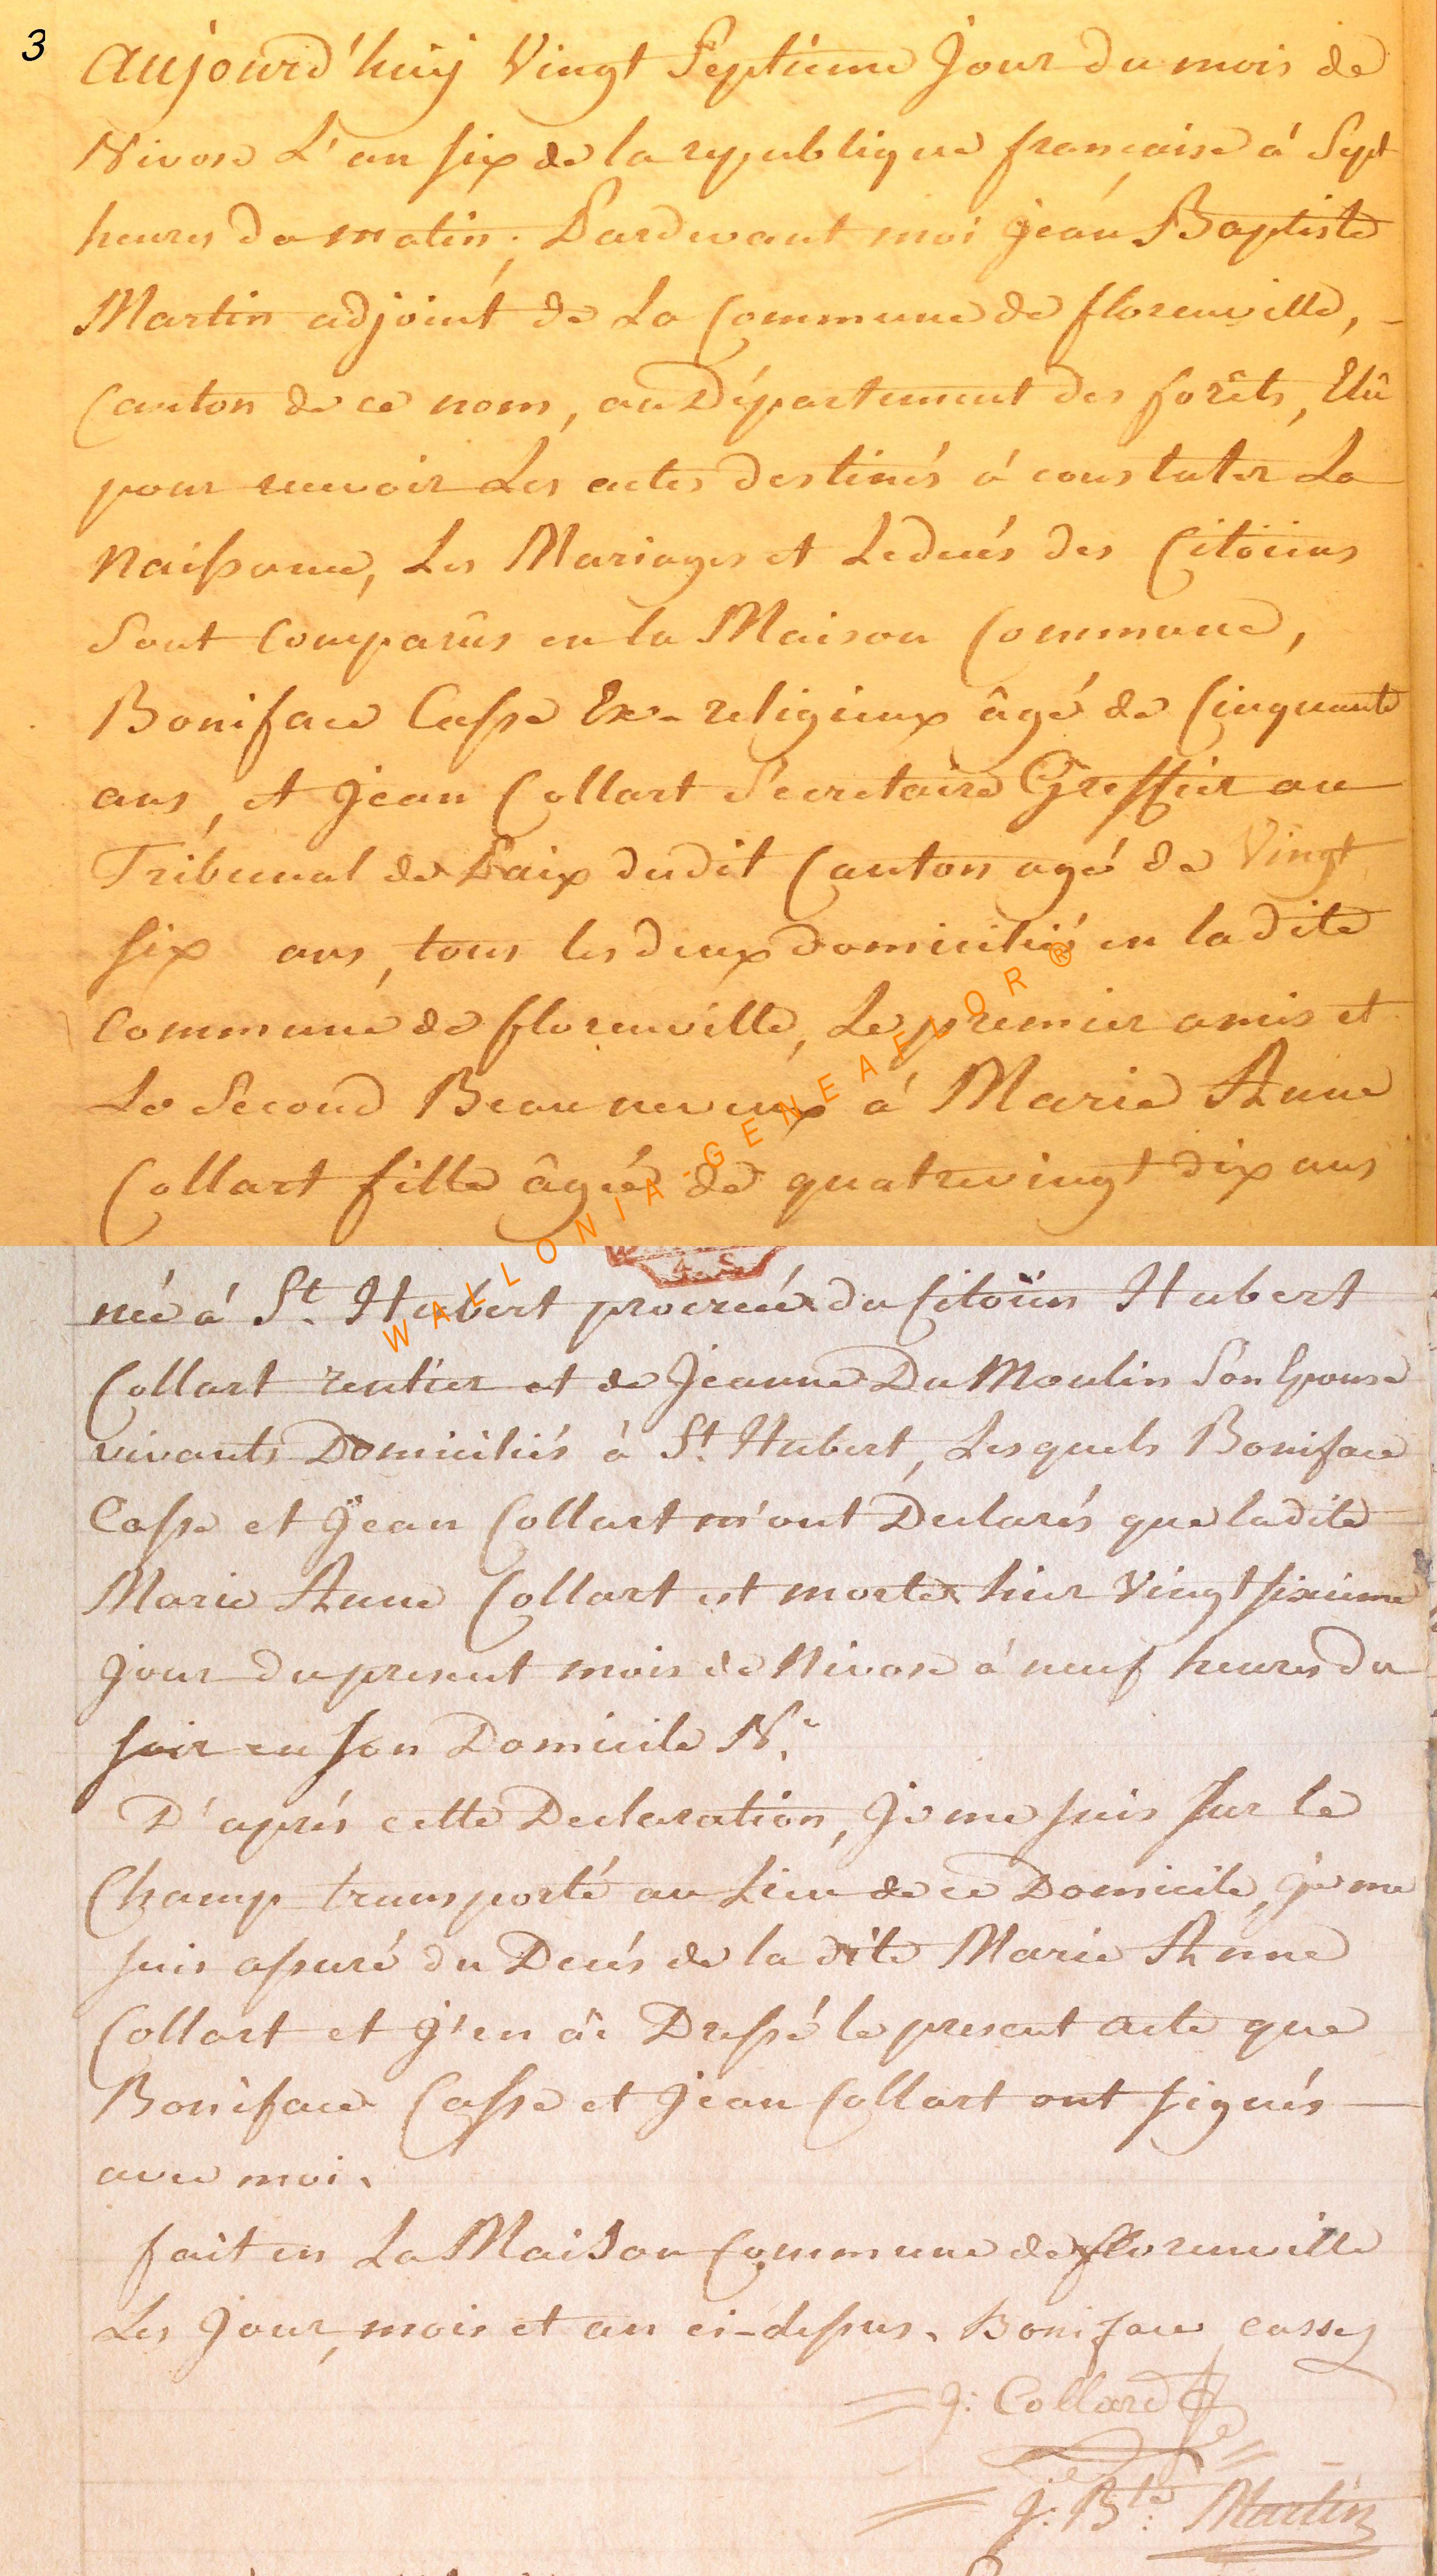 3
Aujourd'huij Vingt Septieme Jour du mois de
Nivose L'an six de la republique francaise à Sept
heures du matin, Pardevant moi jean Baptiste
Martin adjoint de La Commune de florenville,
Canton de ce nom, au Département des forêts, Elû
pour recevoir Les actes destinés à constater La
Naissance, Les Mariages et Le decés des Citoïens
Sont Comparûs en la Maison Commune,
Boniface Casse Ex-religieux âgé de Cinquante
ans, et jean Collart Sécretaire Greffier au
Tribunal de Paix dudit Canton agé de Vingt
six ans, tous les deux domiciliés en la dite
Commune de florenville, Le premier amis et
Le Second Beau neveux à Marie Anne
Collart fille âgée de quatrevingt dix ans
née à St. Hubert procreée du Citoïen Hubert
Collart rentier et de Jeanne Du Moulin Son Epouse
vivants Domiciliés à St. Hubert, Lesquels Boniface
Casse et jean Collart m'ont Declarés que la dite
Marie Anne Collart est morte hier Vingt sixieme
jour du present mois de Nivose à neuf heures du
soir en son Domicile N.
D'aprés cette Declaration, Je me suis sur le
Champ transporté au Lieu de ce Domicile, Je me
suis assuré du Decés de la dite Marie Anne
Collart et J'en ai Dressé le present Acte que
Boniface Casse et jean Collart ont signés
avec moi.
fait en La Maison Commune de florenville
Les Jour, mois et an ci-dessus. Boniface casse
J: Collard
J: Bte: Martin
WALLONIA-GENEAFLOR®